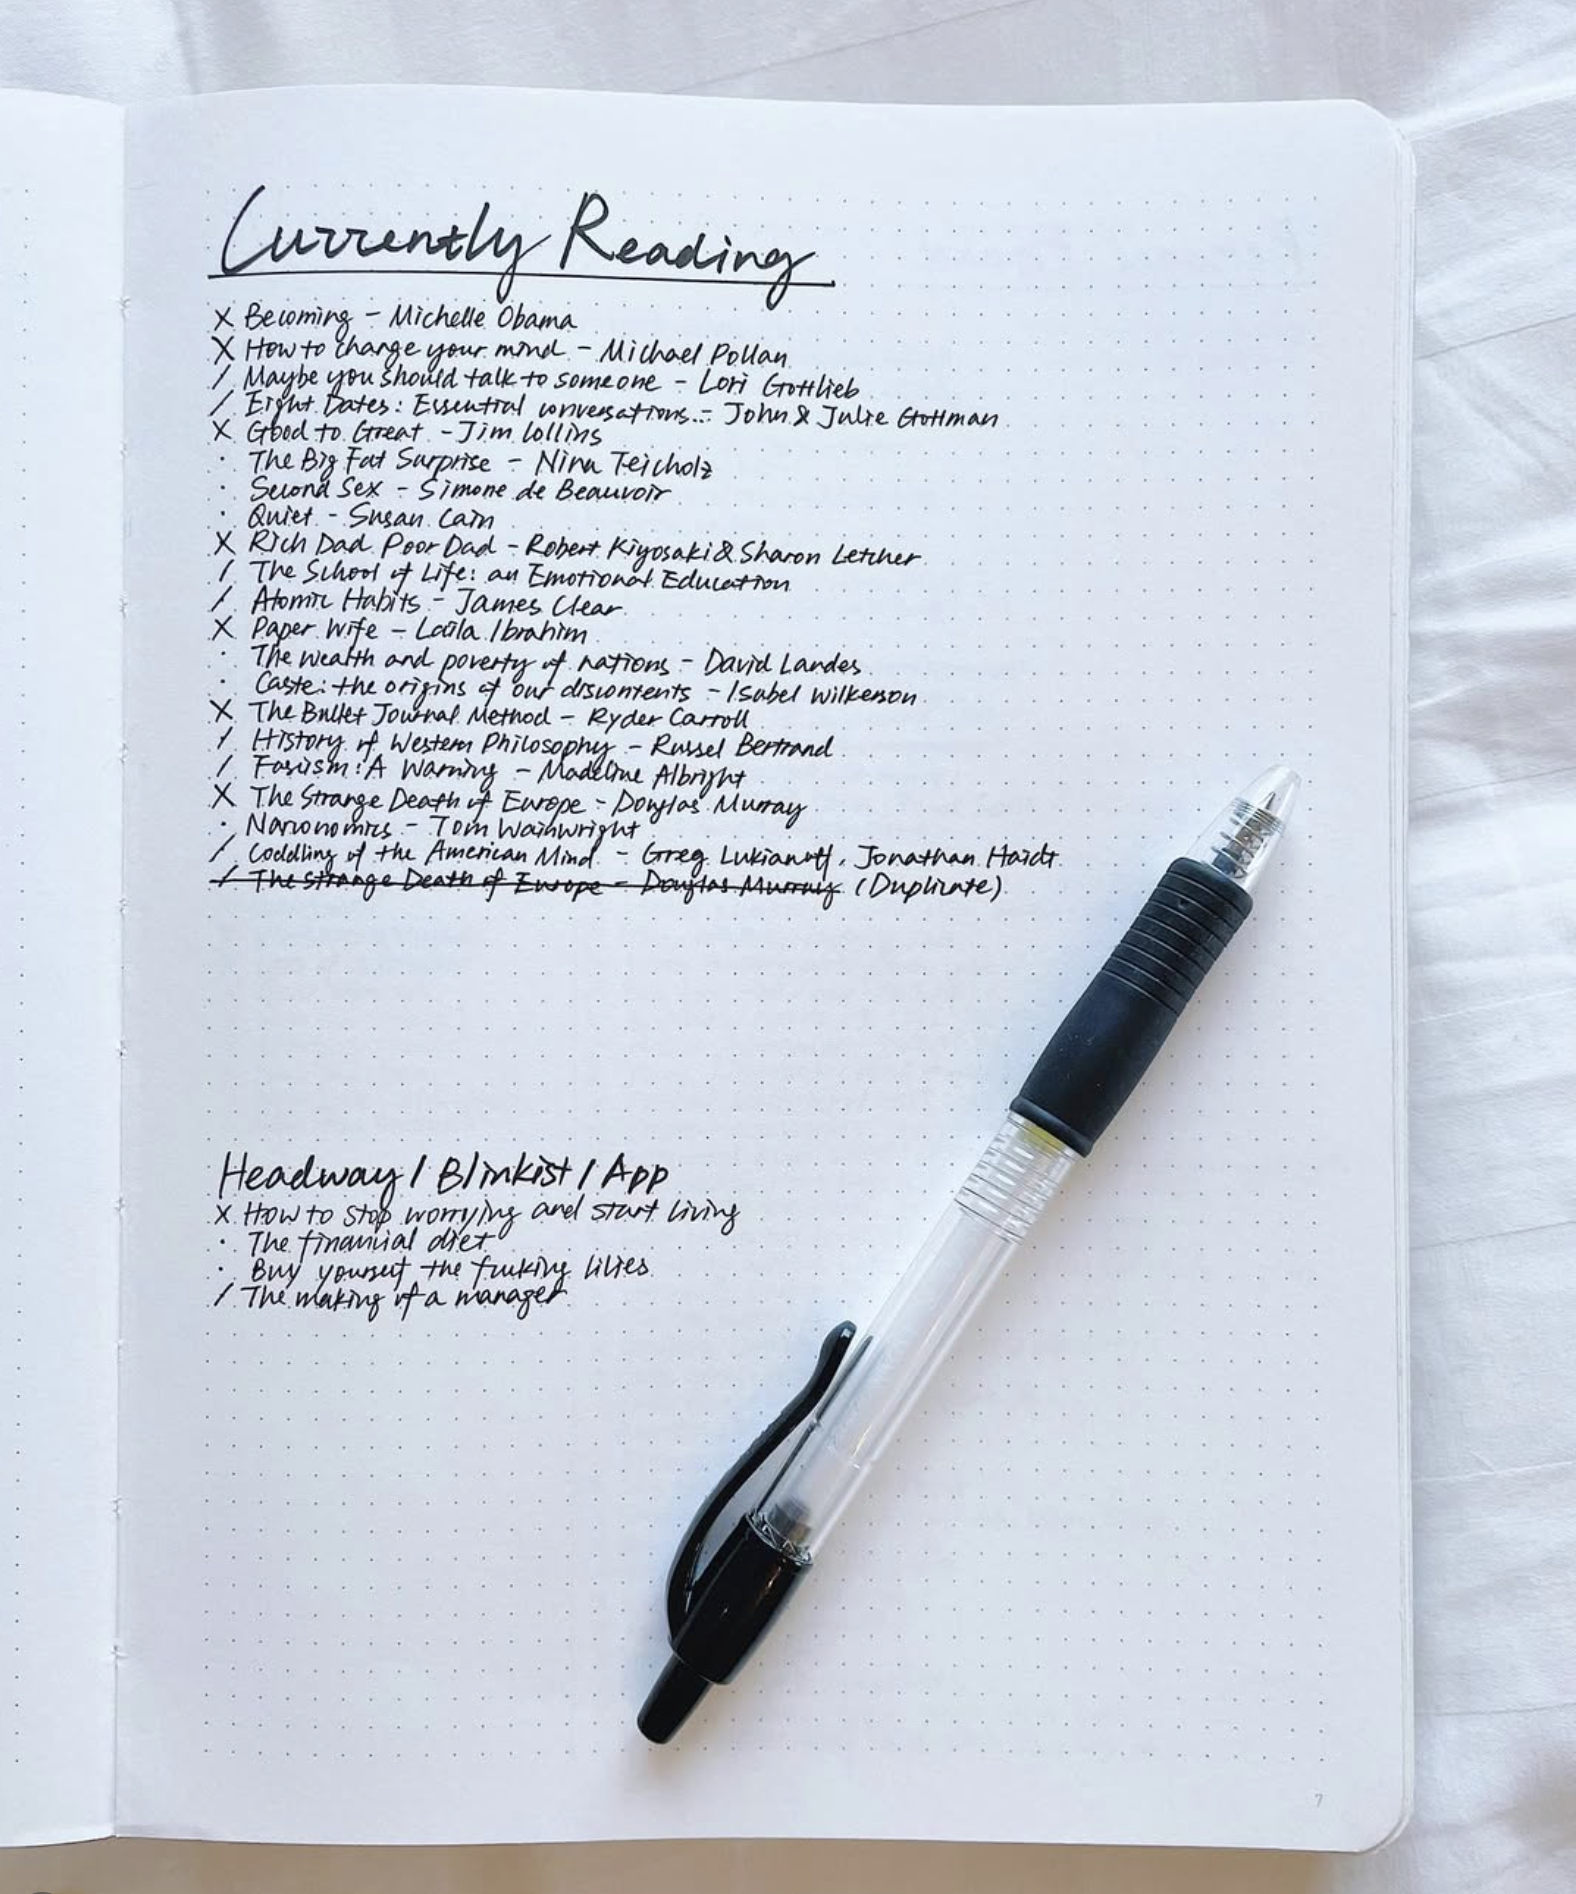 Currently Reading
X Becoming - Michelle Obama
X How to change your mind - Michael Pollan
/ Maybe you should talk to someone - Lori Gottlieb
/ Eight Dates: Essential conversations... - John & Julie Gottman
X Good to Great - Jim Collins
· The Big Fat Surprise - Nina Teicholz
· Second Sex - Simone de Beauvoir
· Quiet - Susan Cain
X Rich Dad Poor Dad - Robert Kiyosaki & Sharon Letcher
/ The School of Life: an Emotional Education
/ Atomic Habits - James Clear
X Paper Wife - Laila Ibrahim
· The wealth and poverty of nations - David Landes
· Caste: the origins of our discontents - Isabel Wilkerson
X The Bullet Journal Method - Ryder Carroll
/ History of Western Philosophy - Russel Bertrand
/ Fascism: A Warning - Madeline Albright
X The Strange Death of Europe - Douglas Murray
· Narconomics - Tom Wainwright
/ Coddling of the American Mind - Greg Lukianoff, Jonathan Haidt
/ The Strange Death of Europe - Douglas Murray (Duplicate)
Headway / Blinkist / App
X How to stop worrying and start living
· The financial diet
· Buy yourself the fucking lilies
/ The making of a manager
7